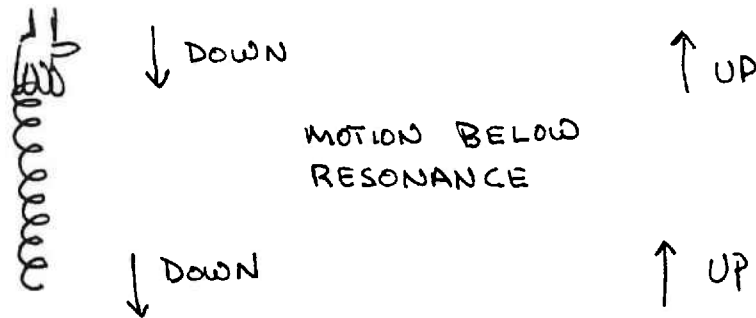 DOWN
UP
MOTION BELOW
RESONANCE
DOWN
UP